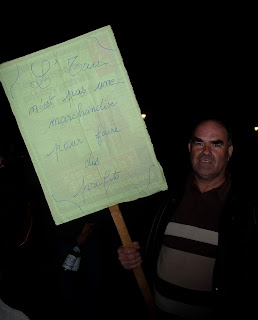 L'Eau
n'est pas une
marchandise
pour faire
des
profits